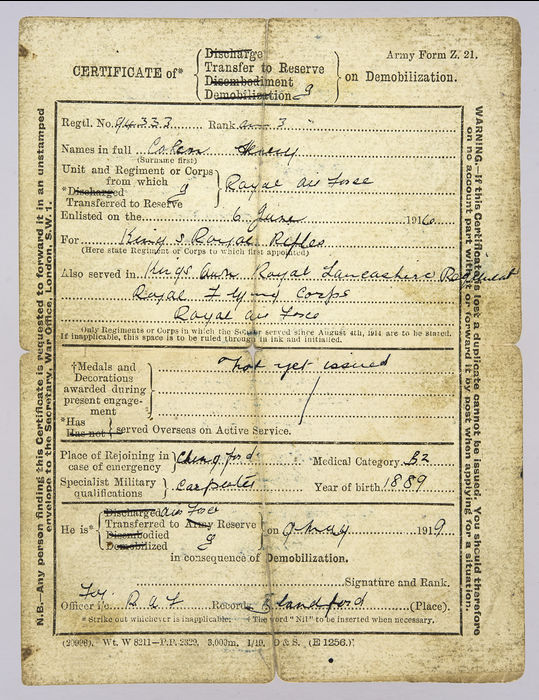 Army Form Z. 21.
CERTIFICATE of*
Discharge
Transfer to Reserve
Disembodiment
Demobilization
on Demobilization.
Regtl. No. 94333 Rank 3
Names in full Cohen Henry
(Surname first)
Unit and Regiment or Corps
from which
*Discharged
Transferred to Reserve
Royal Air Force
Enlisted on the 6 June 1916
For Kings Royal Rifles
(Here state Regiment or Corps to which first appointed)
Also served in Kings Own Royal Lancashire Regiment
Royal Flying Corps
Royal Air Force
Only Regiments or Corps in which the Soldier served since August 4th, 1914 are to be stated.
If inapplicable, this space is to be ruled through in ink and initialled.
†Medals and
Decorations
awarded during
present engage-
ment
Not yet issued
*Has
Has not
served Overseas on Active Service.
Place of Rejoining in
case of emergency
Chingford
Medical Category B2
Specialist Military
qualifications
Carpenter
Year of birth 1889
He is*
Discharged
Air Force
Transferred to Army Reserve
Disembodied
Demobilized
on 1919
in consequence of Demobilization.
Signature and Rank.
For
Officer i/c. R A F Records Blandford (Place).
* Strike out whichever is inapplicable. † The word "Nil" to be inserted when necessary.
(20996). Wt. W 8211—P.P. 2329. 3,000m. 1/19. D & S. (E 1256.)
N.B.—Any person finding this Certificate is requested to forward it in an unstamped
envelope to the Secretary, War Office, London, S.W. 1.
WARNING.—If this Certificate is lost a duplicate cannot be issued. You should therefore
on no account part with it or forward it by post when applying for a situation.